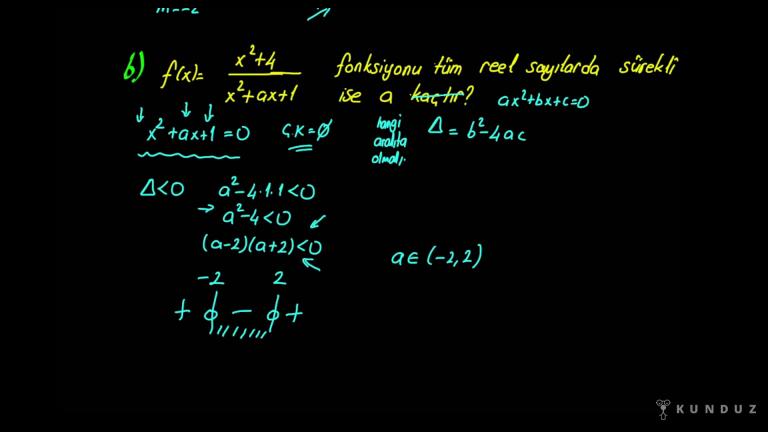 b) f(x)= x²+4 / x²+ax+1 fonksiyonu tüm reel sayılarda sürekli
ise a kaçtır? ax²+bx+c=0
hangi
aralıkta
olmalı.
x²+ax+1=0 Ç.K=∅ Δ = b²-4ac
Δ<0 a²-4.1.1<0
→ a²-4<0
(a-2)(a+2)<0
a∈(-2,2)
-2 2
+ - +
KUNDUZ